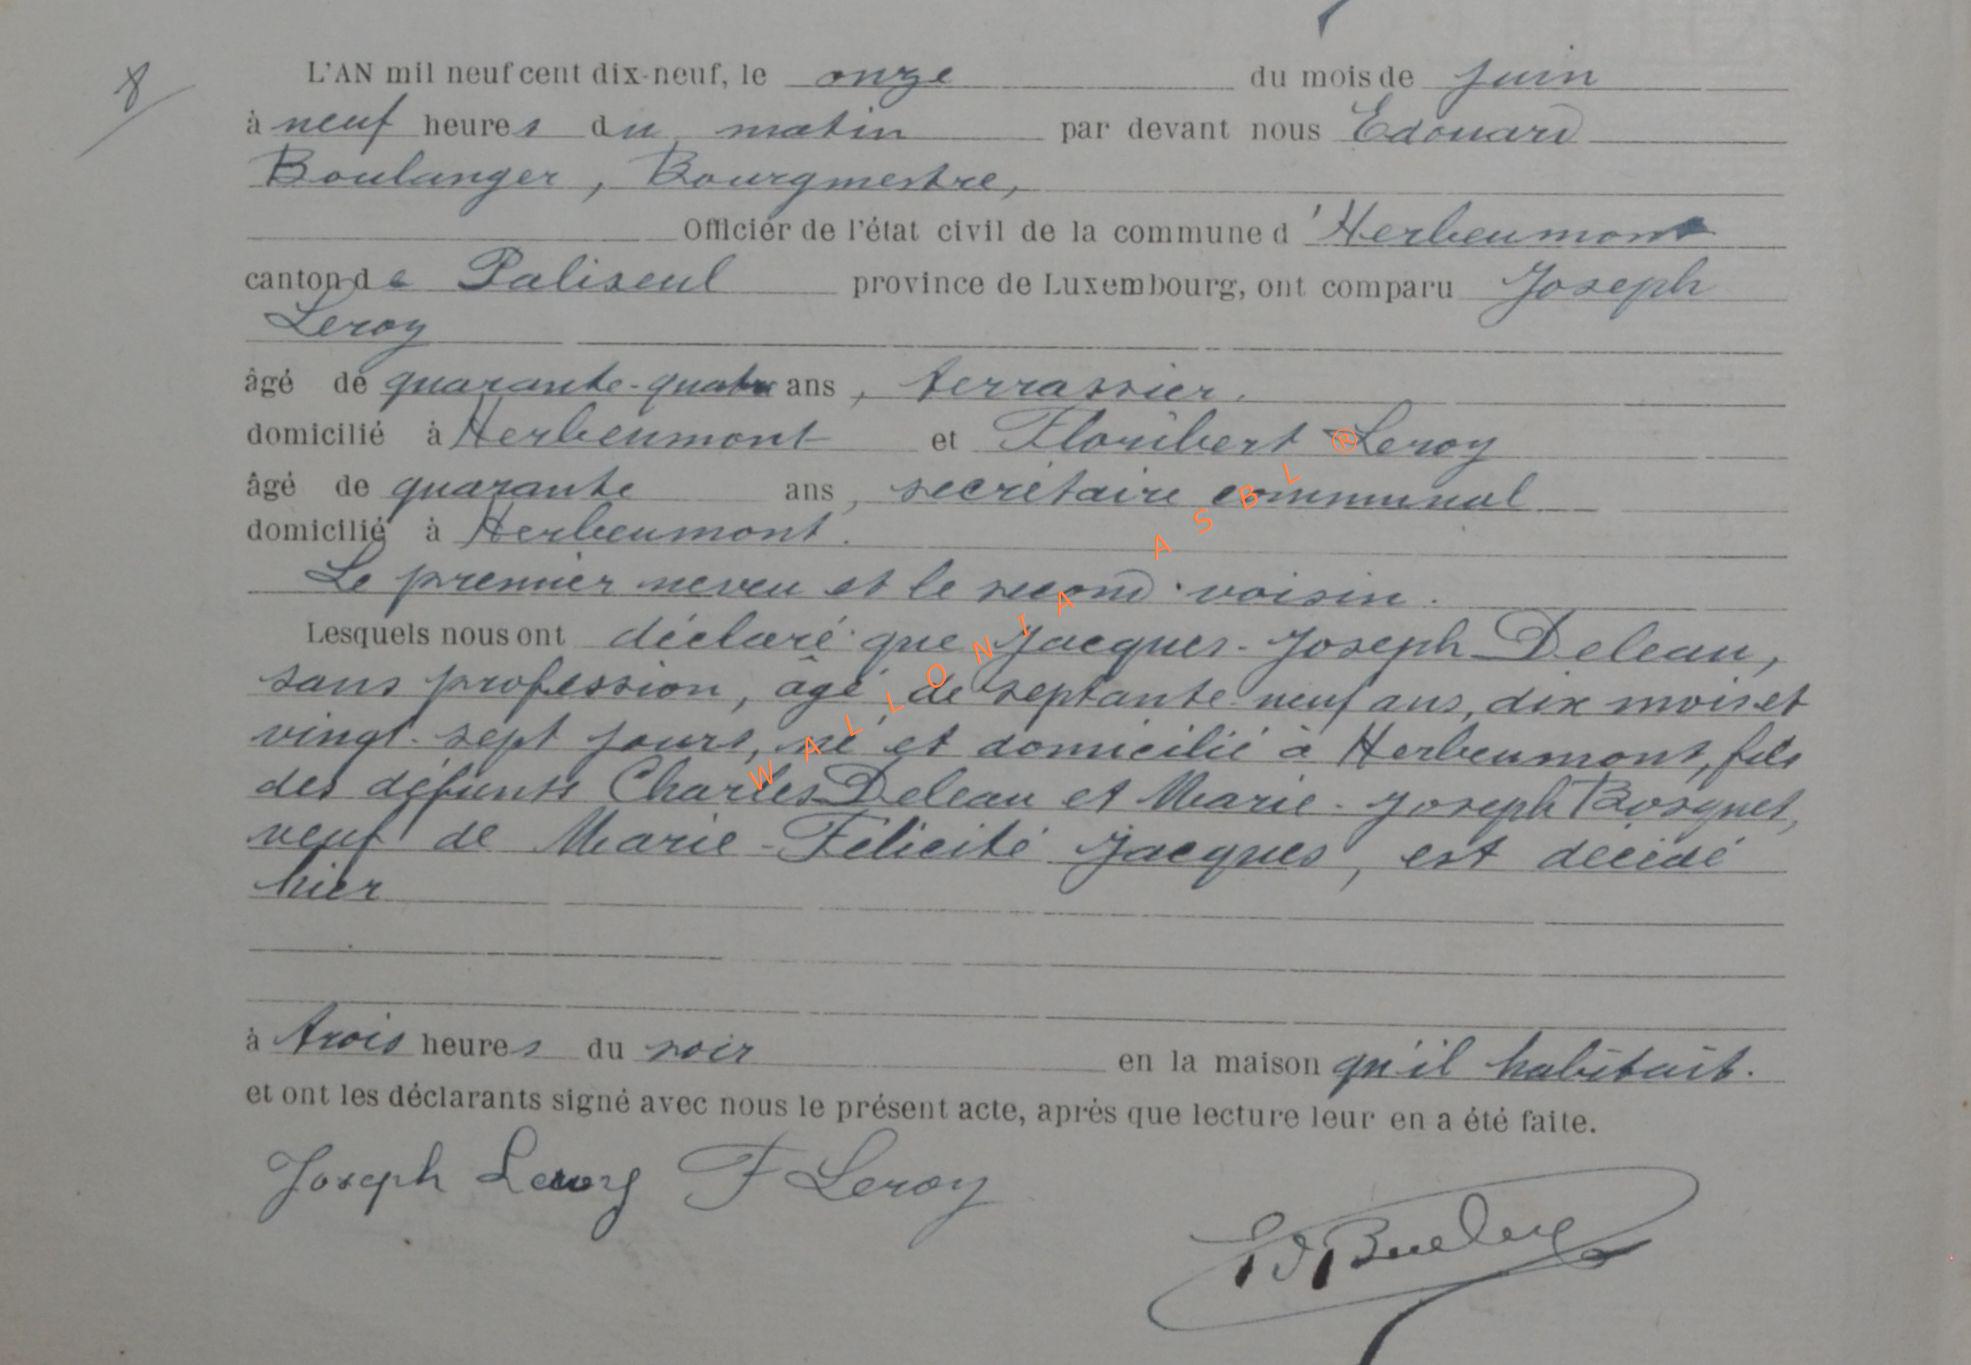 8
L'AN mil neuf cent dix-neuf, le onze du mois de juin
à neuf heures du matin par devant nous Edouard
Boulanger, Bourgmestre,
Officier de l'état civil de la commune d'Herbeumont
canton de Paliseul province de Luxembourg, ont comparu Joseph
Leroy
âgé de quarante-quatre ans, terrassier,
domicilié à Herbeumont et Floribert Leroy
âgé de quarante ans, secrétaire communal
domicilié à Herbeumont.
Le premier neveu et le second voisin.
Lesquels nous ont déclaré que Jacques-Joseph Deleau,
sans profession, âgé de septante neuf ans, dix mois et
vingt-sept jours, né et domicilié à Herbeumont, fils
des défunts Charles Deleau et Marie-Joseph Bosquet,
veuf de Marie-Félicité Jacques, est décédé
hier
à trois heures du soir en la maison qu'il habitait.
et ont les déclarants signé avec nous le présent acte, après que lecture leur en a été faite.
Joseph Leroy F Leroy
WALLONIA ASBL ®